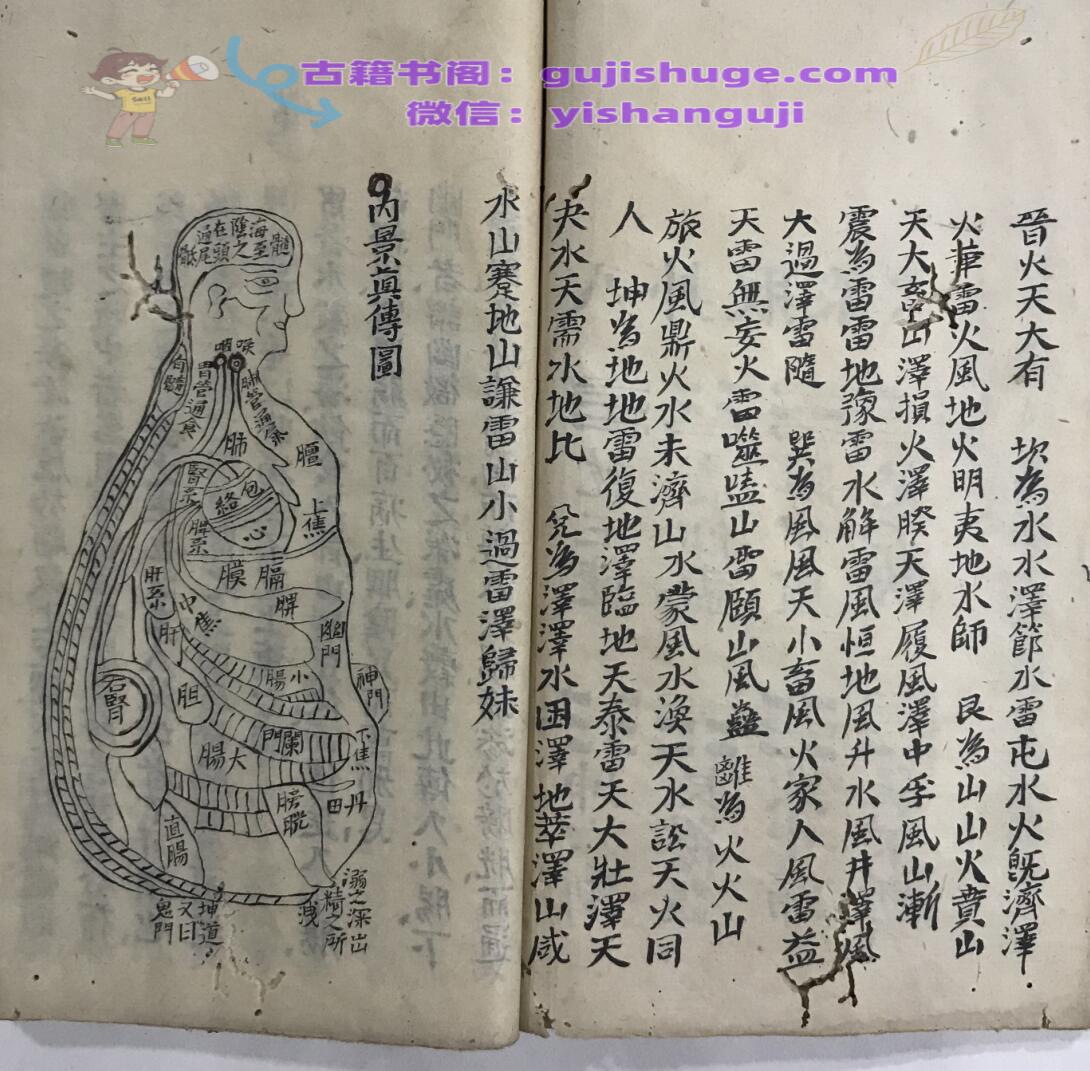 古籍书阁：gujishuge.com
微信：yishanguji
晉火天大有　坎為水水澤節水雷屯水火旣濟澤
火革雷火風地火明夷地水師　艮為山山火賁山
天大畜山澤損火澤睽天澤履風澤中孚風山漸
震為雷雷地豫雷水解雷風恒地風升水風井澤風
大過澤雷隨　巽為風風天小畜風火家人風雷益
天雷無妄火雷噬嗑山雷頤山風蠱　離為火火山
旅火風鼎火水未濟山水蒙風水渙天水訟天火同
人　坤為地地雷復地澤臨地天泰雷天大壯澤天
夬水天需水地比　兌為澤澤水困澤地萃澤山咸
水山蹇地山謙雷山小過雷澤歸妹
內景真傳圖
髓
海至
陰之
在頭
過尾
骶
咽
喉
胃管通食
肺管通氣
脊髓
肺
膻
上焦
腎系
包絡
心
脾系
膈膜
肝系
中焦
脾
幽門
肝
小腸
神門
右腎
胆
闌門
下焦
大腸
丹田
膀胱
直腸
溺之深出
精之所
洩
坤道
又曰
鬼門